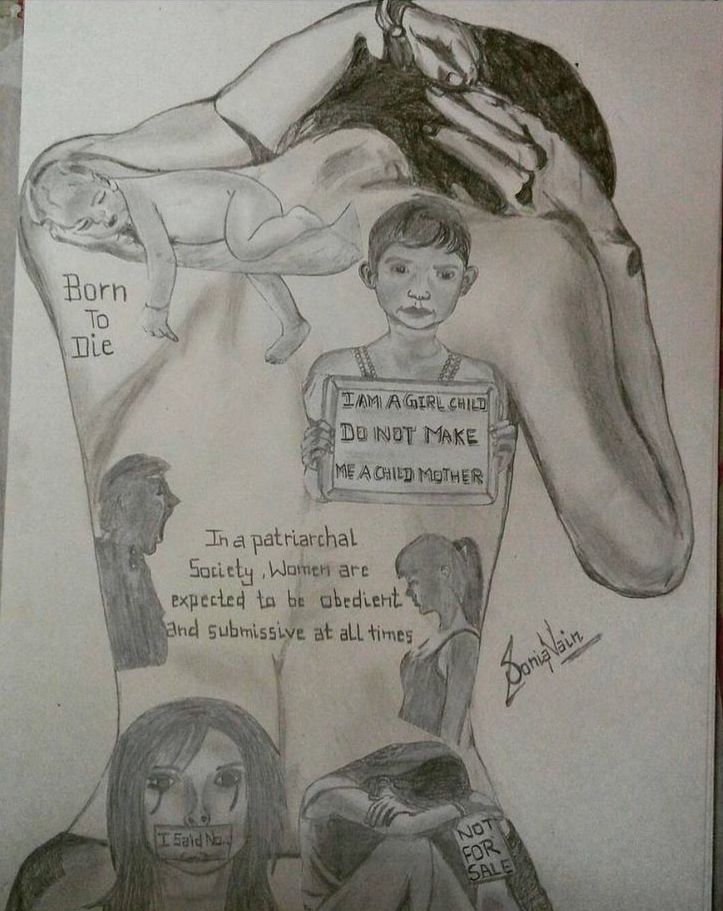 Born
To
Die
I AM A GIRL CHILD
DO NOT MAKE
ME A CHILD MOTHER
In a patriarchal
Society, Women are
expected to be obedient
and submissive at all times
Sonia Vain
I Said No..
NOT
FOR
SALE